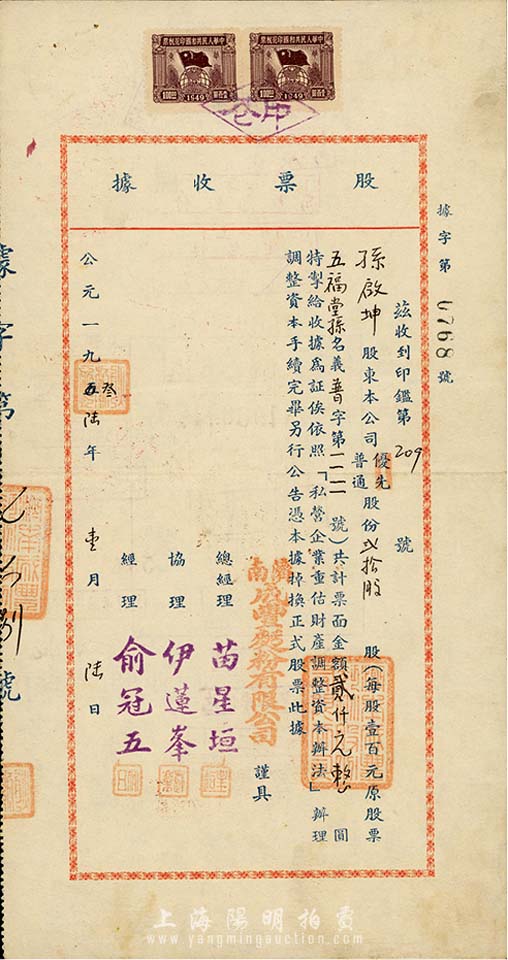 中華人民共和國印花稅票
壹百圓
100圓
1949
中華人民共和國印花稅票
壹百圓
100圓
1949
股票收據
據字第0768號
茲收到印鑑第209號
孫啟坤股東本公司優先普通股份弍拾股股(每股壹百元原股票
五福堂孫名義普字第一一一號)共計票面金額貳仟元整圓
特製給收據為証俟依照「私營企業重估財產調整資本辦法」辦理
調整資本手續完畢另行公告憑本據掉換正式股票此據
濟南成豐麵粉有限公司
謹具
總經理 苗星垣
協理 伊蓮峯
經理 俞冠五
公元一九五叁陸年壹月陸日
據字第
號
上海陽明拍賣
www.yangmingauction.com